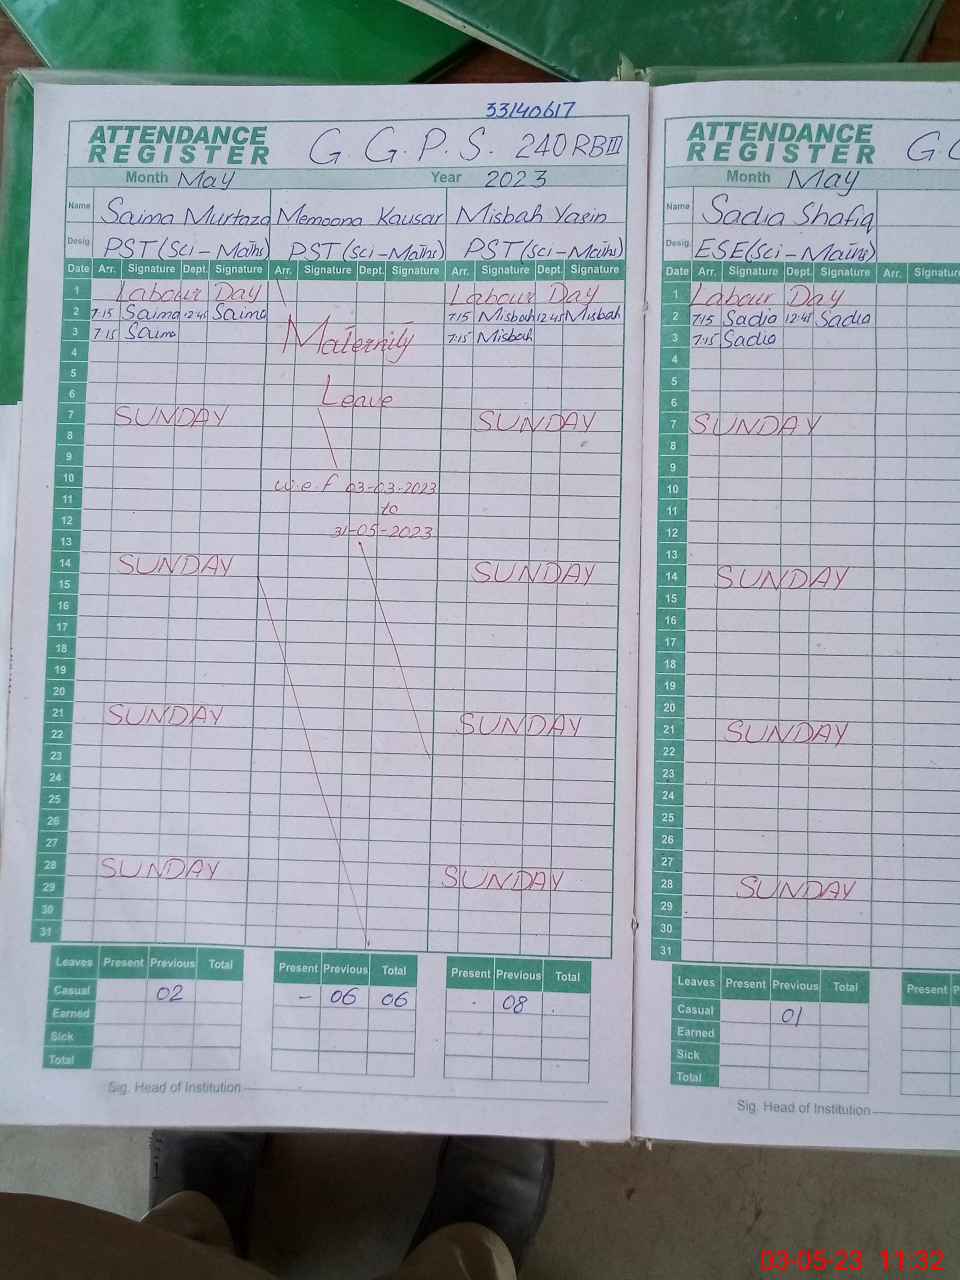 33140617
ATTENDANCE REGISTER G. G. P. S. 240 RB III
Month May Year 2023
Name Saima Murtaza Memoona Kausar Misbah Yasin
Desig. PST (Sci-Maths) PST (Sci-Maths) PST (Sci-Maths)
Date Arr. Signature Dept. Signature Arr. Signature Dept. Signature Arr. Signature Dept. Signature
1 Labour Day Labour Day
2 7:15 Saima 12:45 Saima 7:15 Misbah 12:45 Misbah
3 7:15 Saima Maternity 7:15 Misbah
4
5
6 Leave
7 SUNDAY SUNDAY
8
9
10 w.e.f 03-03-2023
11 to
12 31-05-2023
13
14 SUNDAY SUNDAY
15
16
17
18
19
20
21 SUNDAY SUNDAY
22
23
24
25
26
27
28 SUNDAY SUNDAY
29
30
31
Leaves Present Previous Total Present Previous Total Present Previous Total
Casual 02 - 06 06 08
Earned
Sick
Total
Sig. Head of Institution
ATTENDANCE REGISTER G.
Month May
Name Sadia Shafiq
Desig. ESE (Sci-Maths)
Date Arr. Signature Dept. Signature Arr. Signature
1 Labour Day
2 7:15 Sadia 12:45 Sadia
3 7:15 Sadia
4
5
6
7 SUNDAY
8
9
10
11
12
13
14 SUNDAY
15
16
17
18
19
20
21 SUNDAY
22
23
24
25
26
27
28 SUNDAY
29
30
31
Leaves Present Previous Total Present
Casual 01
Earned
Sick
Total
Sig. Head of Institution
03-05-23 11:32